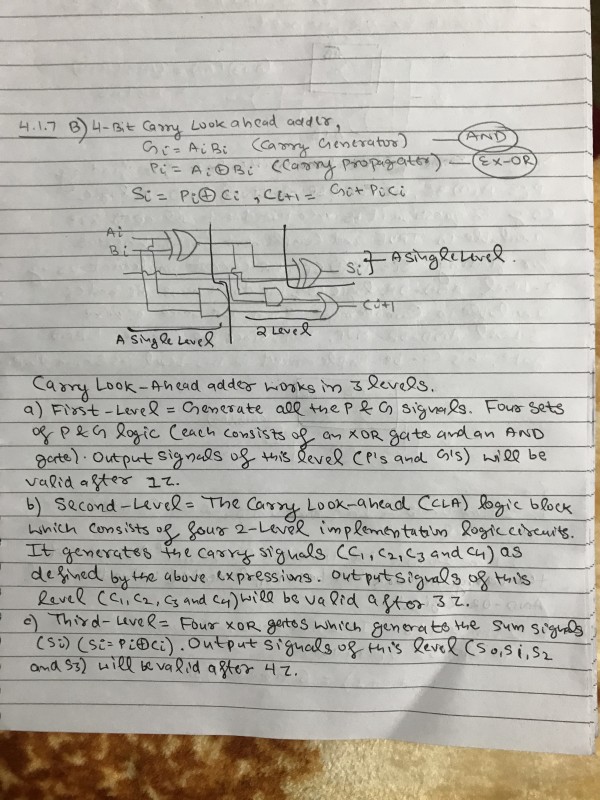 4.1.7 B) 4-Bit Carry Look ahead adder,
Gi = AiBi (Carry Generator) — AND
Pi = Ai⊕Bi (Carry propagator) — EX-OR
Si = Pi⊕Ci , Ci+1 = Gi+PiCi
Ai
Bi
Si } A Single Level.
Ci+1
A Single Level
2 Level
Carry Look-Ahead adder works in 3 levels.
a) First-Level = Generate all the P & G signals. Four sets
of P & G logic (each consists of an XOR gate and an AND
gate). Output signals of this level (P's and G's) will be
valid after 1τ.
b) Second-Level = The Carry Look-ahead (CLA) logic block
which consists of four 2-Level implementation logic circuits.
It generates the carry signals (C1, C2, C3 and C4) as
defined by the above expressions. Output signals of this
level (C1, C2, C3 and C4) will be valid after 3τ.
c) Third-Level = Four XOR gates which generate the sum signals
(Si) (Si = Pi⊕Ci). Output signals of this level (S0, S1, S2
and S3) will be valid after 4τ.